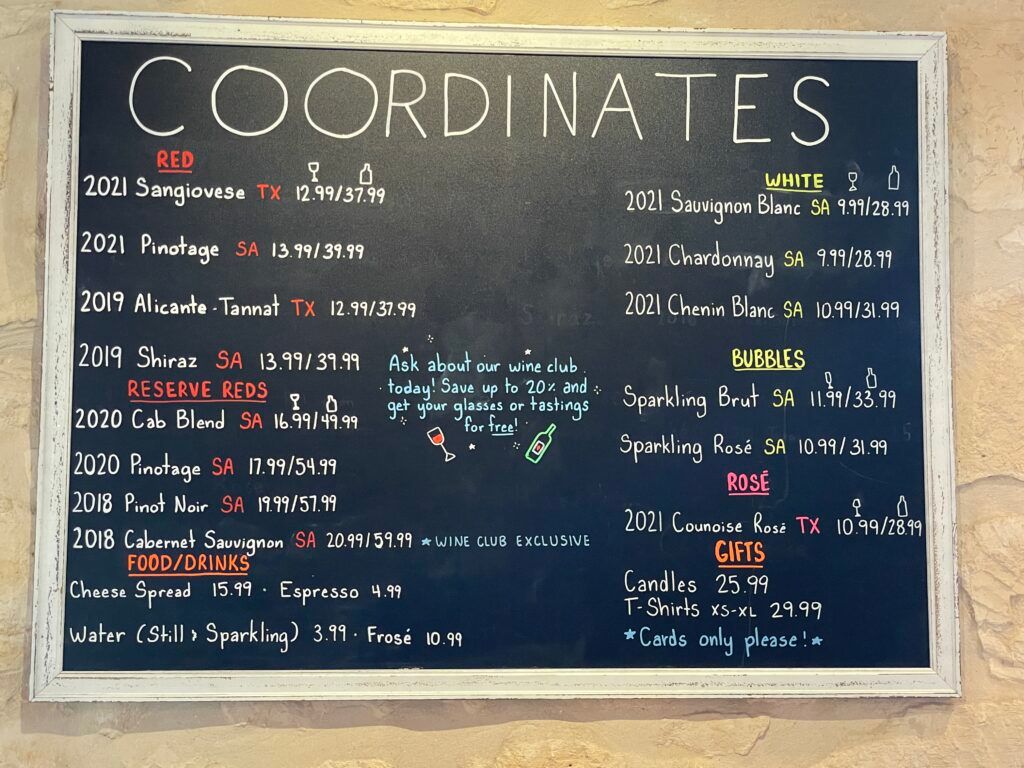 COORDINATES
RED
2021 Sangiovese TX 12.99/37.99
2021 Pinotage SA 13.99/39.99
2019 Alicante-Tannat TX 12.99/37.99
2019 Shiraz SA 13.99/39.99
RESERVE REDS
2020 Cab Blend SA 16.99/49.99
2020 Pinotage SA 17.99/54.99
2018 Pinot Noir SA 19.99/57.99
2018 Cabernet Sauvignon SA 20.99/59.99 *WINE CLUB EXCLUSIVE
FOOD/DRINKS
Cheese Spread 15.99 · Espresso 4.99
Water (Still & Sparkling) 3.99 · Frosé 10.99
Ask about our wine club
today! Save up to 20% and
get your glasses or tastings
for free!
WHITE
2021 Sauvignon Blanc SA 9.99/28.99
2021 Chardonnay SA 9.99/28.99
2021 Chenin Blanc SA 10.99/31.99
BUBBLES
Sparkling Brut SA 11.99/33.99
Sparkling Rosé SA 10.99/31.99
ROSÉ
2021 Counoise Rosé TX 10.99/28.99
GIFTS
Candles 25.99
T-Shirts XS-XL 29.99
*Cards only please!*